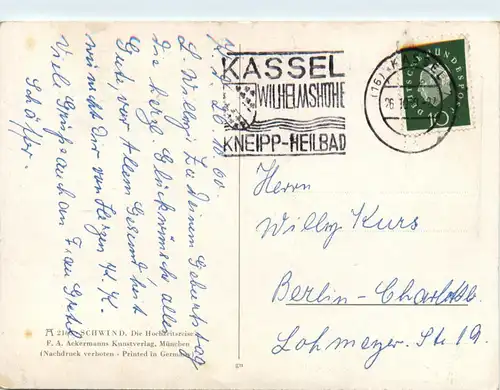 26.10.60.
L. Willy! Zu Deinem Geburtstag
die herzl. Glückwünsche, alles
Gute, vor Allem Gesundheit
wünscht Dir von Herzen
Viele Grüße auch an Frau Gretel
Schäffer.
KASSEL
WILHELMSHÖHE
KNEIPP-HEILBAD
(16) KASSEL
26.10.
DEUTSCHE BUNDESPOST
10
Herrn
Willy Kurs
Berlin-Charlottb.
Lohmeyer. Str 19.
SCHWIND. Die Hochzeitsreise
F. A. Ackermanns Kunstverlag, München
(Nachdruck verboten - Printed in Germany)